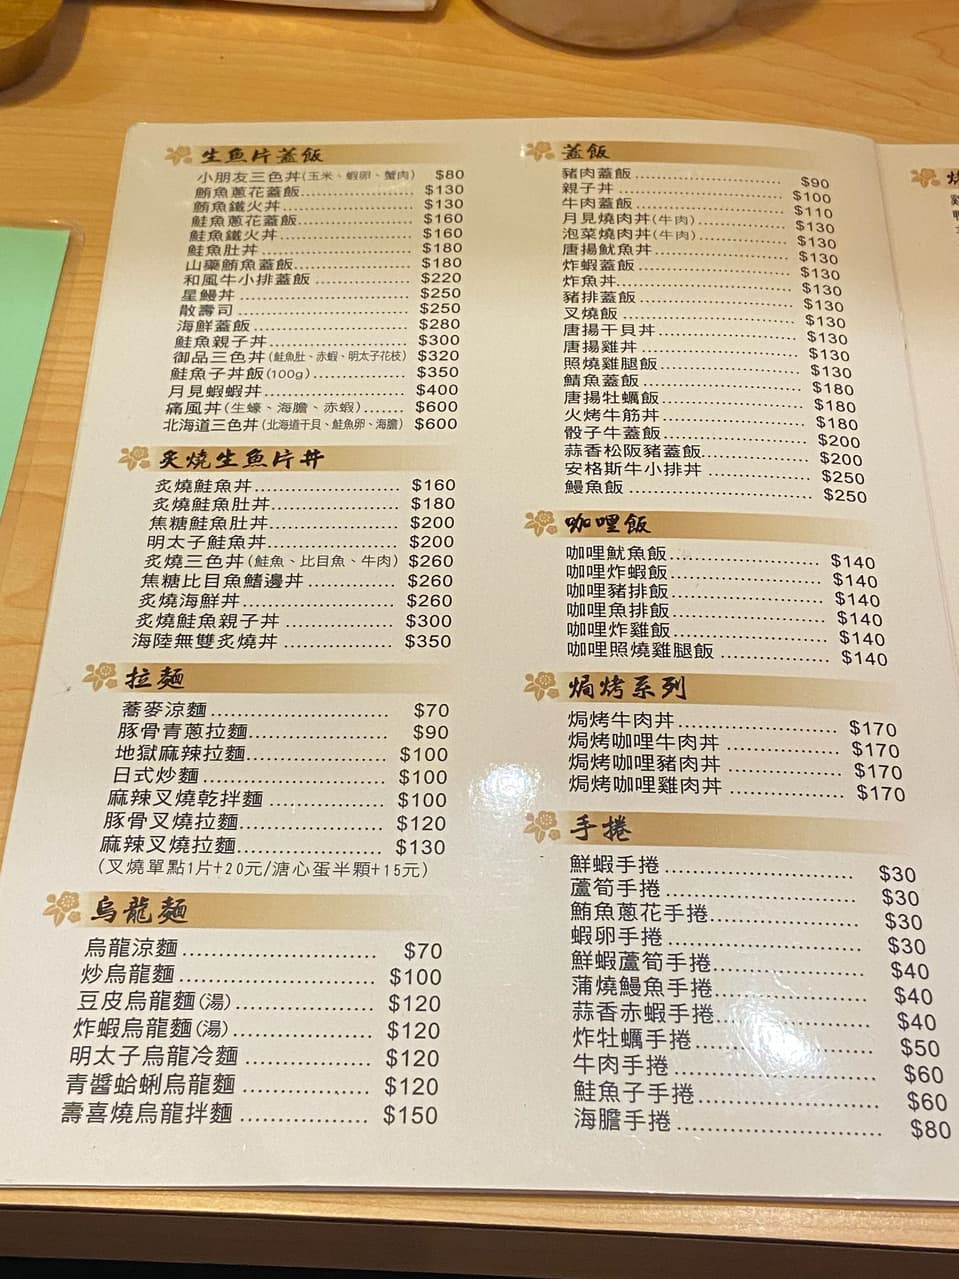 生魚片蓋飯
小朋友三色丼(玉米、蝦卵、蟹肉) $80
鮪魚蔥花蓋飯 $130
鮪魚鐵火丼 $130
鮭魚蔥花蓋飯 $160
鮭魚鐵火丼 $160
鮭魚肚丼 $180
山藥鮪魚蓋飯 $180
和風牛小排蓋飯 $220
星鰻丼 $250
散壽司 $250
海鮮蓋飯 $280
鮭魚親子丼 $300
御品三色丼(鮭魚肚、赤蝦、明太子花枝) $320
鮭魚子丼飯(100g) $350
月見蝦蝦丼 $400
痛風丼(生蠔、海膽、赤蝦) $600
北海道三色丼(北海道干貝、鮭魚卵、海膽) $600
炙燒生魚片丼
炙燒鮭魚丼 $160
炙燒鮭魚肚丼 $180
焦糖鮭魚肚丼 $200
明太子鮭魚丼 $200
炙燒三色丼(鮭魚、比目魚、牛肉) $260
焦糖比目魚鰭邊丼 $260
炙燒海鮮丼 $260
炙燒鮭魚親子丼 $300
海陸無雙炙燒丼 $350
拉麵
蕎麥涼麵 $70
豚骨青蔥拉麵 $90
地獄麻辣拉麵 $100
日式炒麵 $100
麻辣叉燒乾拌麵 $100
豚骨叉燒拉麵 $120
麻辣叉燒拉麵 $130
(叉燒單點1片+20元/溏心蛋半顆+15元)
烏龍麵
烏龍涼麵 $70
炒烏龍麵 $100
豆皮烏龍麵(湯) $120
炸蝦烏龍麵(湯) $120
明太子烏龍冷麵 $120
青醬蛤蜊烏龍麵 $120
壽喜燒烏龍拌麵 $150
蓋飯
豬肉蓋飯 $90
親子丼 $100
牛肉蓋飯 $110
月見燒肉丼(牛肉) $130
泡菜燒肉丼(牛肉) $130
唐揚魷魚丼 $130
炸蝦蓋飯 $130
炸魚丼 $130
豬排蓋飯 $130
叉燒飯 $130
唐揚干貝丼 $130
唐揚雞丼 $130
照燒雞腿飯 $130
鯖魚蓋飯 $180
唐揚牡蠣飯 $180
火烤牛筋丼 $180
骰子牛蓋飯 $200
蒜香松阪豬蓋飯 $200
安格斯牛小排丼 $250
鰻魚飯 $250
咖哩飯
咖哩魷魚飯 $140
咖哩炸蝦飯 $140
咖哩豬排飯 $140
咖哩魚排飯 $140
咖哩炸雞飯 $140
咖哩照燒雞腿飯 $140
焗烤系列
焗烤牛肉丼 $170
焗烤咖哩牛肉丼 $170
焗烤咖哩豬肉丼 $170
焗烤咖哩雞肉丼 $170
手捲
鮮蝦手捲 $30
蘆筍手捲 $30
鮪魚蔥花手捲 $30
蝦卵手捲 $30
鮮蝦蘆筍手捲 $40
蒲燒鰻魚手捲 $40
蒜香赤蝦手捲 $40
炸牡蠣手捲 $50
牛肉手捲 $60
鮭魚子手捲 $60
海膽手捲 $80